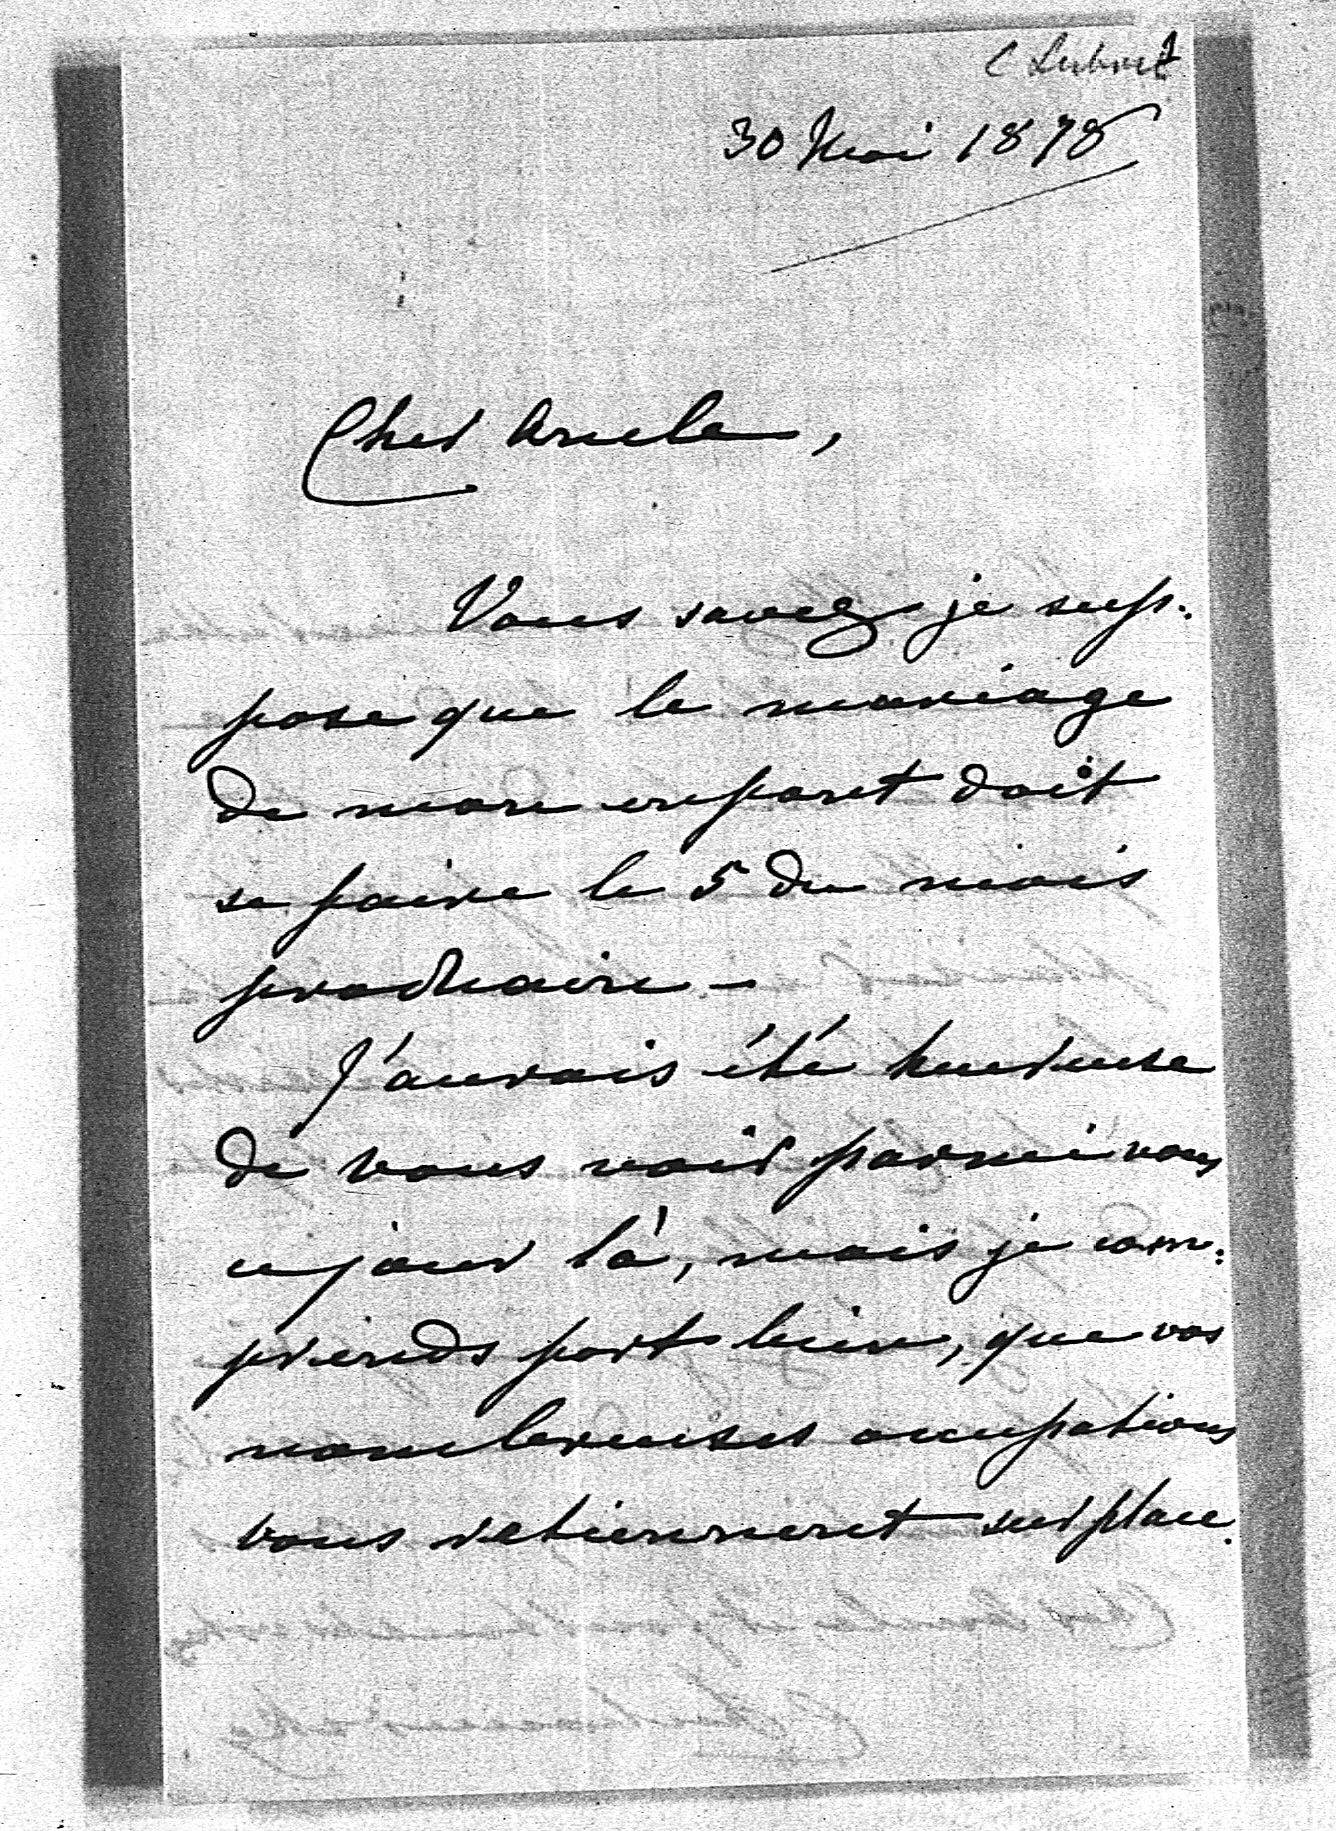 30 Mai 1878
Cher Oncle,
Vous savez je sup-
pose que le mariage
de mon enfant doit
se faire le 5 du mois
prochain -
J'aurais été heureuse
de vous voir parmi nous
ce jour là, mais je com-
prends fort bien, que vos
nombreuses occupations
vous retiennent sur place.